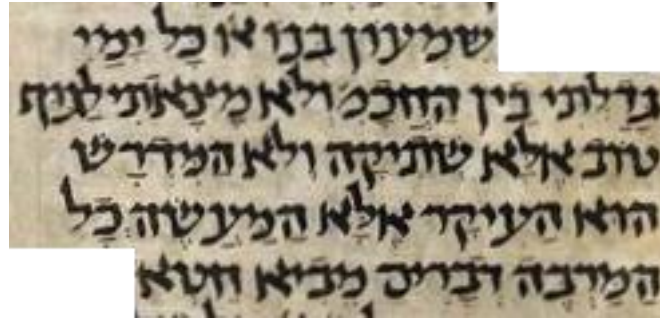 שמעון בנו או כל ימיי
גדלתי בין החכמ ולא מצאתי לגוף
טוב אלא שתיקה ולא המדרש
הוא העיקר אלא המעשה כל
המרבה דברים מביא חטא